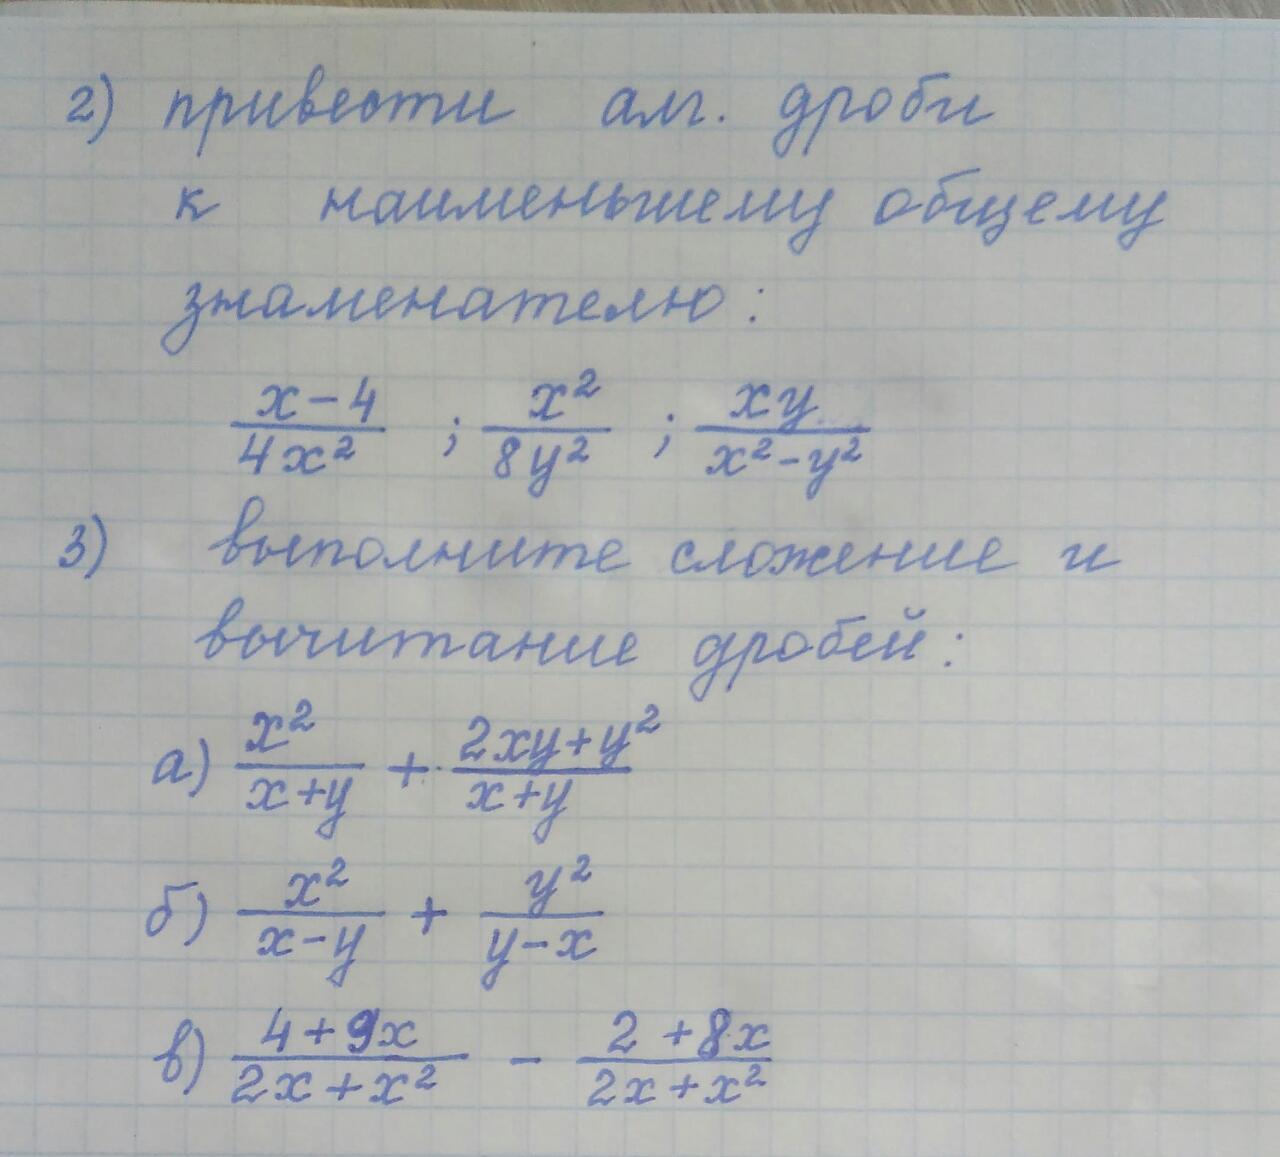 2) привести алг. дроби
к наименьшему общему
знаменателю:
x-4 / 4x² ; x² / 8y² ; xy / x²-y²
3) выполните сложение и
вычитание дробей:
а) x² / x+y + 2xy+y² / x+y
б) x² / x-y + y² / y-x
в) 4+9x / 2x+x² - 2+8x / 2x+x²